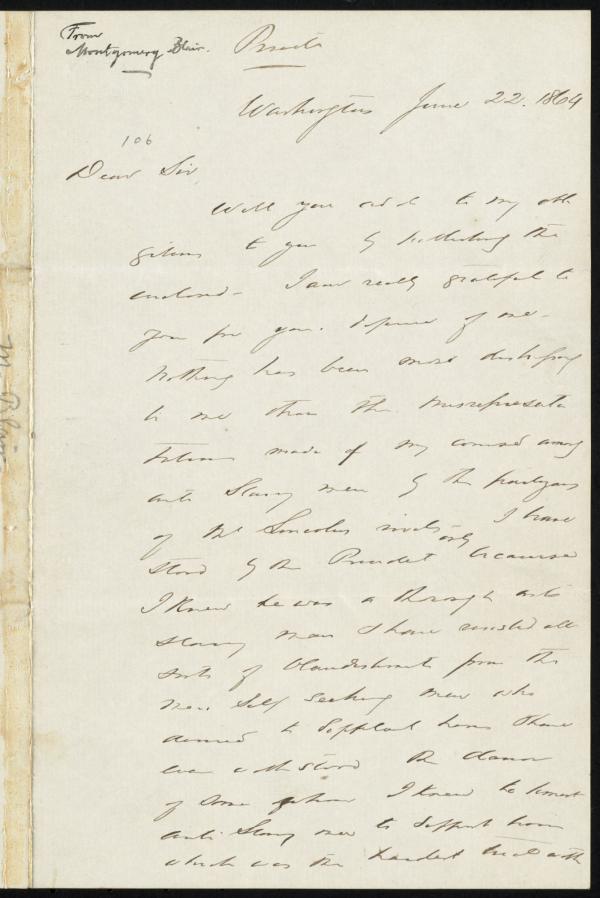 From
Montgomery Blair.
Private
Washington June 22. 1864
106
Dear Sir
Will you add to my obli
gations to you by publishing the
enclosed - I am really grateful to
you for your defence of me -
Nothing has been more
to me than the misrepresenta
tations made of my course among
anti Slavery men by the partizans
of Mr Lincolns rivals I have
only
stood by the President because
I knew he was a through anti
slavery man I have resisted all
sorts of blandishments from the
mere Self seeking men who
desired to Supplant him I have
even withstood the clamor
of some whom I knew to be honest
anti-Slavery men to support him
which was the hardest trial with
M Blair